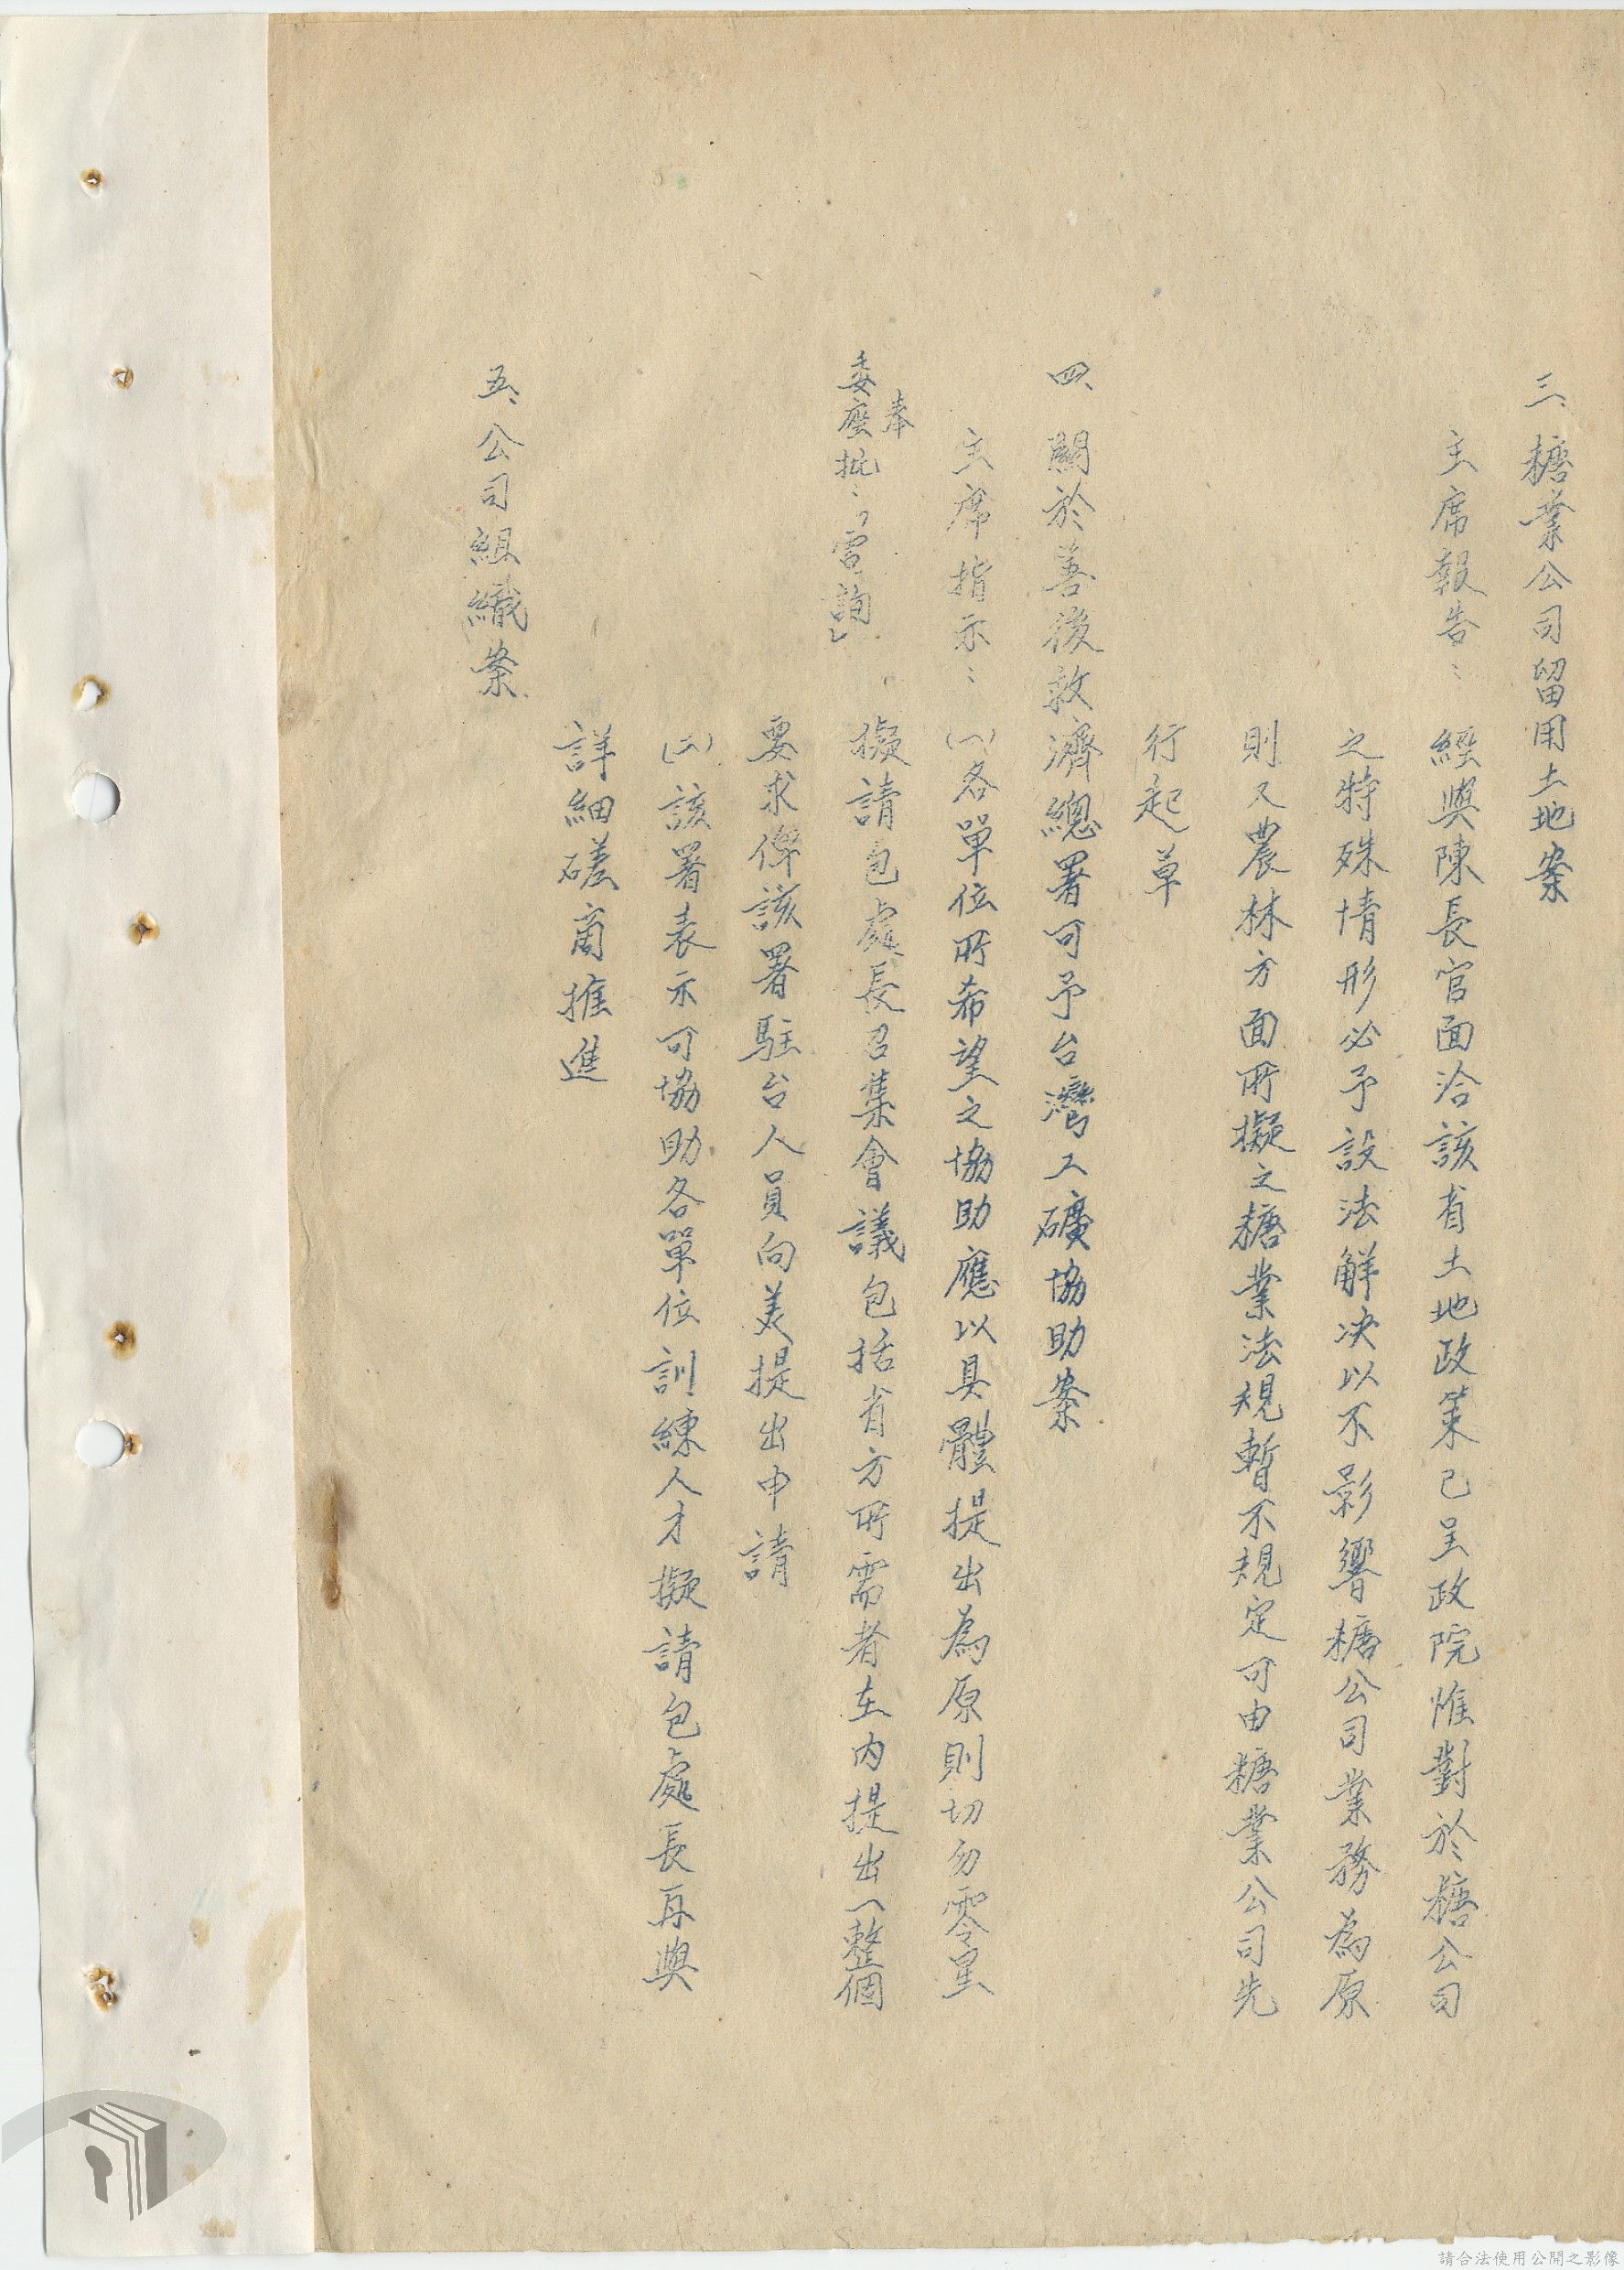 三、糖業公司留用土地案
主席報告：經與陳長官面洽該省土地政策已呈政院惟對於糖公司
之特殊情形必予設法解決以不影響糖公司業務為原
則又農林方面所擬之糖業法規暫不規定可由糖業公司先
行起草
四、關於善後救濟總署可予台灣工礦協助案
主席指示：(一)各單位所希望之協助應以具體提出為原則切勿零星
奉
委座批：「電詢」
擬請包處長召集會議包括省方所需者在內提出一整個
要求俾該署駐台人員向美提出申請
(二)該署表示可協助各單位訓練人才擬請包處長再與
詳細磋商推進
五、公司組織案
請合法使用公開之影像